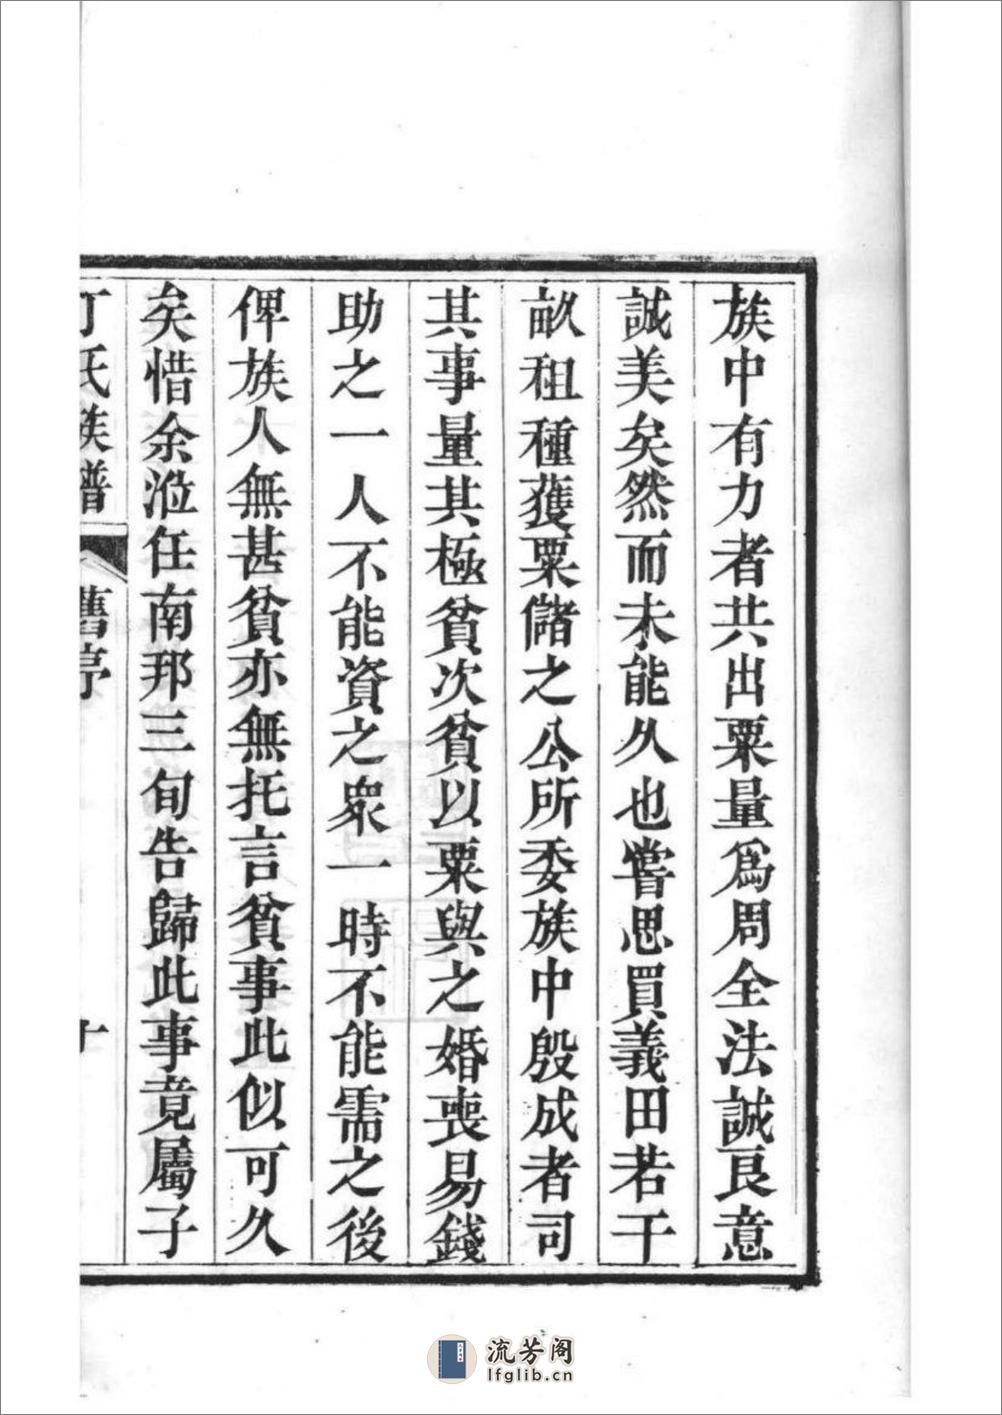 族中有力者共出粟量為周全法誠良意
誠美矣然而未能久也嘗思買義田若干
畝租種獲粟儲之公所委族中殷成者司
其事量其極貧次貧以粟與之婚喪易錢
助之一人不能資之衆一時不能需之後
俾族人無甚貧亦無托言貧事此似可久
矣惜余涖任南邦三旬告歸此事竟屬子
丁氏族譜 舊序 十
流芳阁
lfglib.cn